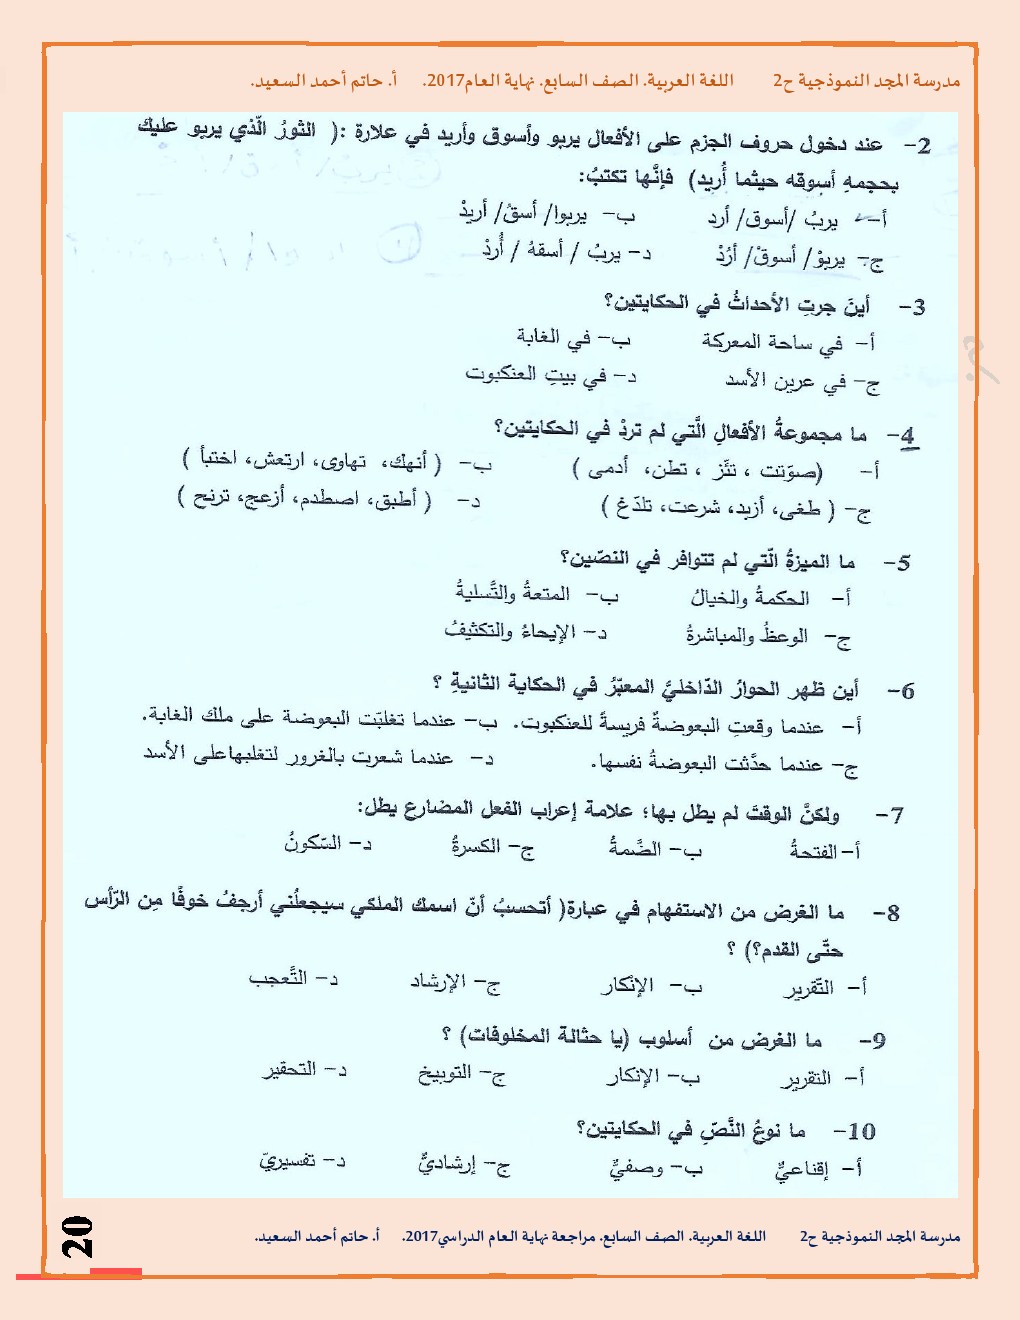 مدرسة المجد النموذجية ح2 اللغة العربية. الصف السابع. نهاية العام2017. أ. حاتم أحمد السعيد.
2- عند دخول حروف الجزم على الأفعال يربو وأسوق وأريد في علارة :( الثورُ الّذي يربو عليك
بحجمهِ أسوقه حيثما أُريد) فإنَّها تكتبُ:
أ- يربُ /أسوق/ أرد ب- يربوا/ أسقُ/ أريدْ
ج- يربوْ/ أسوقْ/ أرُدْ د- يربُ / أسقهُ / أُردْ
3- أينَ جرتِ الأحداثُ في الحكايتين؟
أ- في ساحة المعركة ب- في الغابة
ج- في عرين الأسد د- في بيتِ العنكبوت
4- ما مجموعةُ الأفعالِ الَّتي لم تردْ في الحكايتين؟
أ- (صوّتت ، تئَز ، تطن، أدمى ) ب- ( أنهك، تهاوى، ارتعش، اختبأ )
ج- ( طغى، أزبد، شرعت، تلدَغ ) د- ( أطبق، اصطدم، أزعج، ترنح )
5- ما الميزةُ الّتي لم تتوافر في النصّين؟
أ- الحكمةُ والخيالُ ب- المتعةُ والتَّسليةُ
ج- الوعظُ والمباشرةُ د- الإيحاءُ والتكثيفُ
6- أين ظهر الحوارُ الدّاخليُّ المعبّرُ في الحكاية الثانيةِ ؟
أ- عندما وقعتِ البعوضةُ فريسةً للعنكبوت. ب- عندما تغلبّت البعوضة على ملك الغابة.
ج- عندما حدَّثت البعوضةُ نفسها. د- عندما شعرت بالغرور لتغلبهاعلى الأسد
7- ولكنَّ الوقتَ لم يطل بها؛ علامة إعراب الفعل المضارع يطل:
أ- الفتحةُ ب- الضَّمةُ ج- الكسرةُ د- السّكونُ
8- ما الغرض من الاستفهام في عبارة( أتحسبُ أنّ اسمك الملكي سيجعلُني أرجفُ خوفًا مِن الرّأس
حتّى القدم؟) ؟
أ- التّقرير ب- الإنْكار ج- الإرشاد د- التَّعجب
9- ما الغرض من أسلوب (يا حثالة المخلوفات) ؟
أ- التقرير ب- الإنكار ج- التوبيخ د- التحقير
10- ما نوعُ النَّصّ في الحكايتين؟
أ- إقناعيٌّ ب- وصفيٌّ ج- إرشاديٌّ د- تفسيريّ
مدرسة المجد النموذجية ح2 اللغة العربية. الصف السابع. مراجعة نهاية العام الدراسي2017. أ. حاتم أحمد السعيد.
20